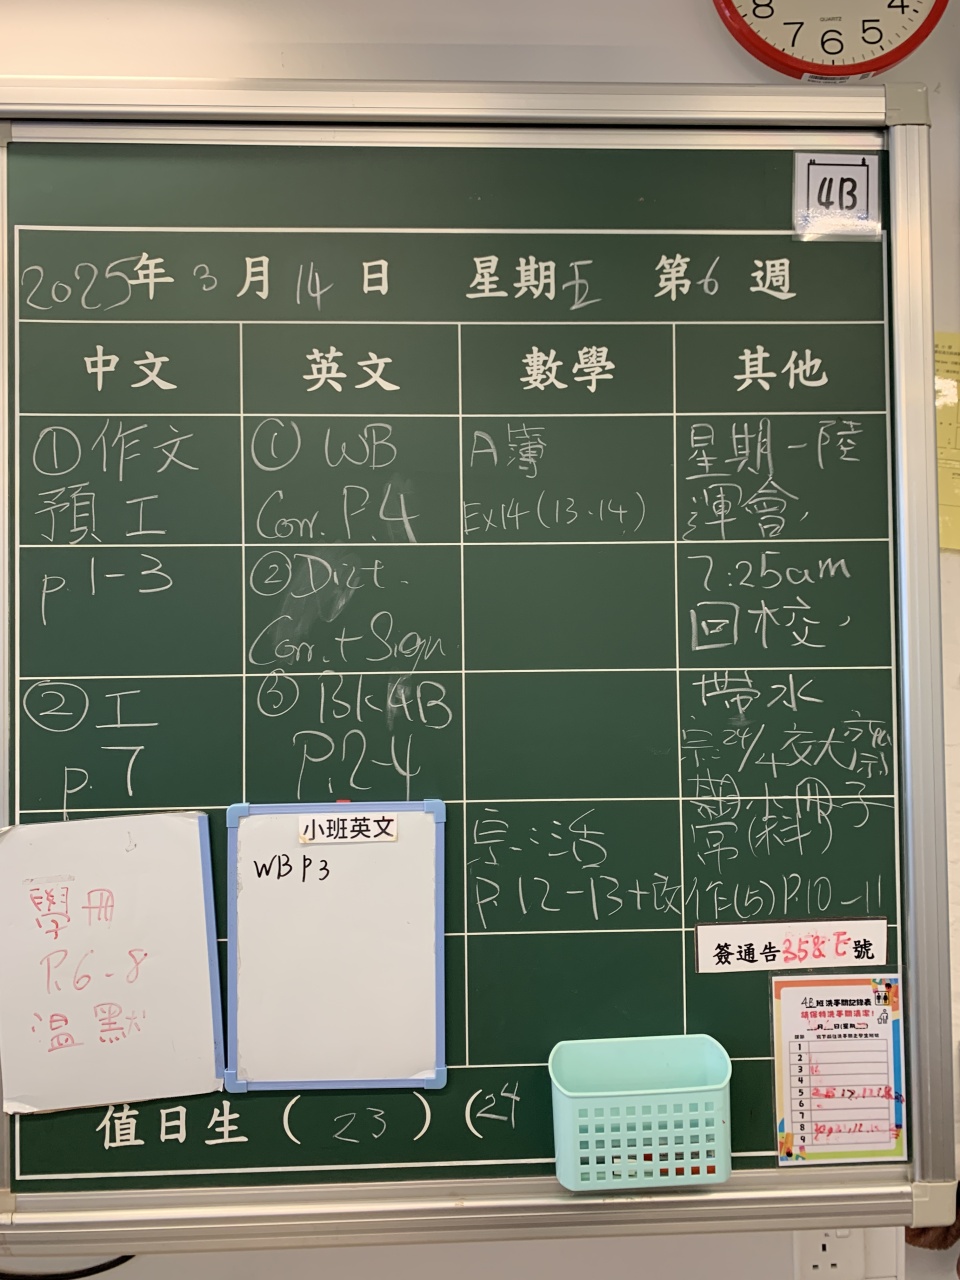 8 7 6 5 4
QUARTZ
4B
2025年3月14日 星期五 第6週
中文 英文 數學 其他
①作文
預工
p.1-3
②工
p.7
① WB
Corr. P.4
② Dict.
Corr. + Sign.
③ Bk 4B
P.2-4
A簿
Ex14(13.14)
宗:活
P.12-13+改作(5)P.10-11
星期一陸
運會,
7:25am
回校,
帶水
宗:24/4交大齋
常(料)
小冊子
學冊
P.6-8
溫默
小班英文
WB P3
簽通告358E號
4B班洗手間記錄表
請保持洗手間清潔!
1
2
3
4
5
6
7
8
9
值日生(23)(24